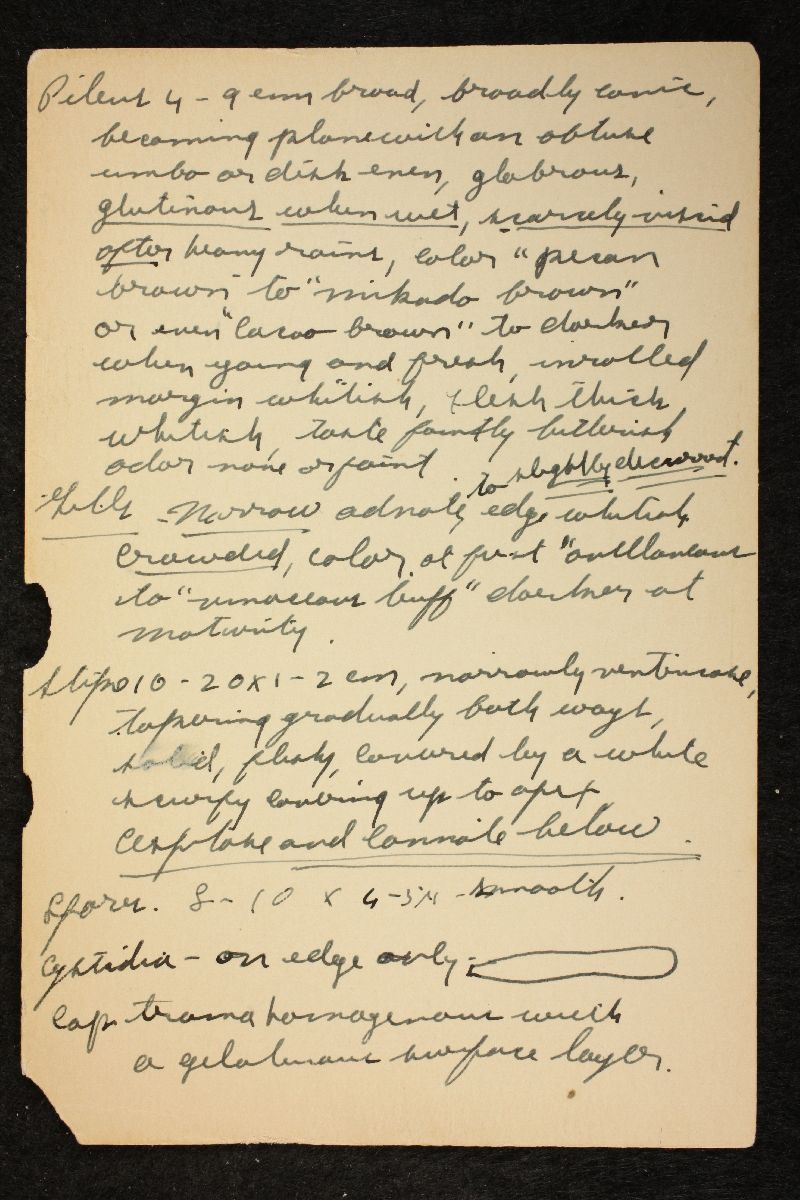 Pileus 4 - 9 cm broad, broadly conic,
becoming plane with an obtuse
umbo or disk even, glabrous,
glutinous when wet, scarcely viscid
after heavy rains, color "pecan
brown" to "mikado brown"
or even "cacao brown" to darker
when young and fresh, inrolled
margin whitish, flesh thick
whitish, taste faintly bitterish
odor none or faint
Gills - Narrow adnate, to slightly decurrent. edge whitish
Crowded, color at first "avellaneous
to "vinaceous buff" darker at
maturity.
Stipe 10 - 20 x 1 - 2 cm, narrowly ventricose,
tapering gradually both ways,
solid, fleshy, covered by a white
scurfy covering up to apex,
Cespitose and connate below.
Spores. 8 - 10 x 4 - 5 µ - smooth.
Cystidia - on edge only -
Cap trama homogenous with
a gelatinous surface layer.